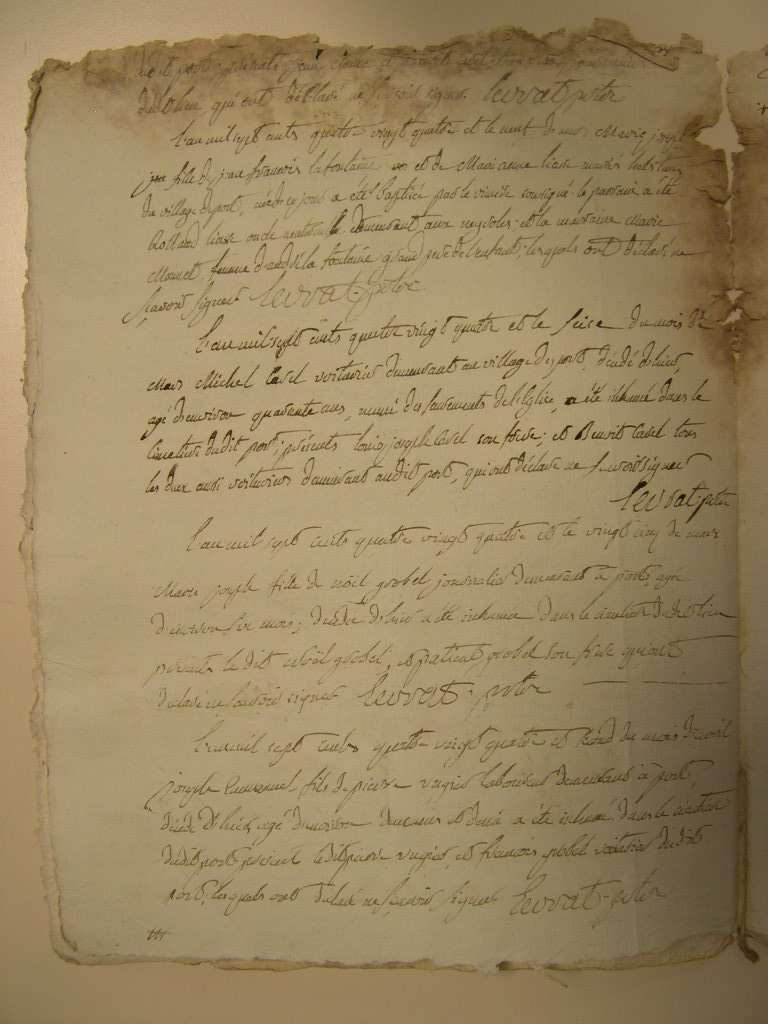 dudit port; présents jean claude et
dudit lieu qui ont déclaré ne sçavoir signer Levrat ptre
L'an mil sept cents quatre vingt quatre et le neuf de mars Marie joseph
fille de jean françois lafontaine et de Marianne liaise mariés habitans
du village de port, née ce jour a été baptisée par le vicaire soussigné le parrain a été
Rolland liaise oncle maternelle demeurant aux neyroles; et la marraine Marie
Monnet femme d'andré la fontaine grand père de l'enfant; lesquels ont déclaré ne
sçavoir signer Levrat ptre
L'an mil sept cents quatre vingt quatre et le seise du mois de
Mars Michel Cavel voiturier demeurant au village de port, décédé d'hier,
agé d'environ quarante ans, munie des sacrements de l'Eglise, a été inhumé dans le
cimetière dudit port; présents louis joseph Cavel son frère; et Benoit Cavel tous
les deux aussi voituriers demeurant audit port, qui ont déclaré ne sçavoir signer
Levrat ptre
L'an mil sept cents quatre vingt quatre et le vingt cinq de mars
Marie joseph fille de noël grobel journalier demeurant à port, agée
d'environ six mois; décédée d'hier a été inhumée dans le cimetière dudit lieu
présents le dit noël grobel, et patient grobel son frère qui ont
déclaré ne sçavoir signer Levrat ptre
L'an mil sept cents quatre vingt quatre et second du mois d'avril
joseph Emmanuel fils de pierre laboureur demeurant à port,
décédé d'hier, agé d'environ un an et demi a été inhumé dans le cimetière
dudit port présent ledit pierre et françois grobel voiturier dudit
port, lesquels ont déclaré ne sçavoir signer Levrat ptre